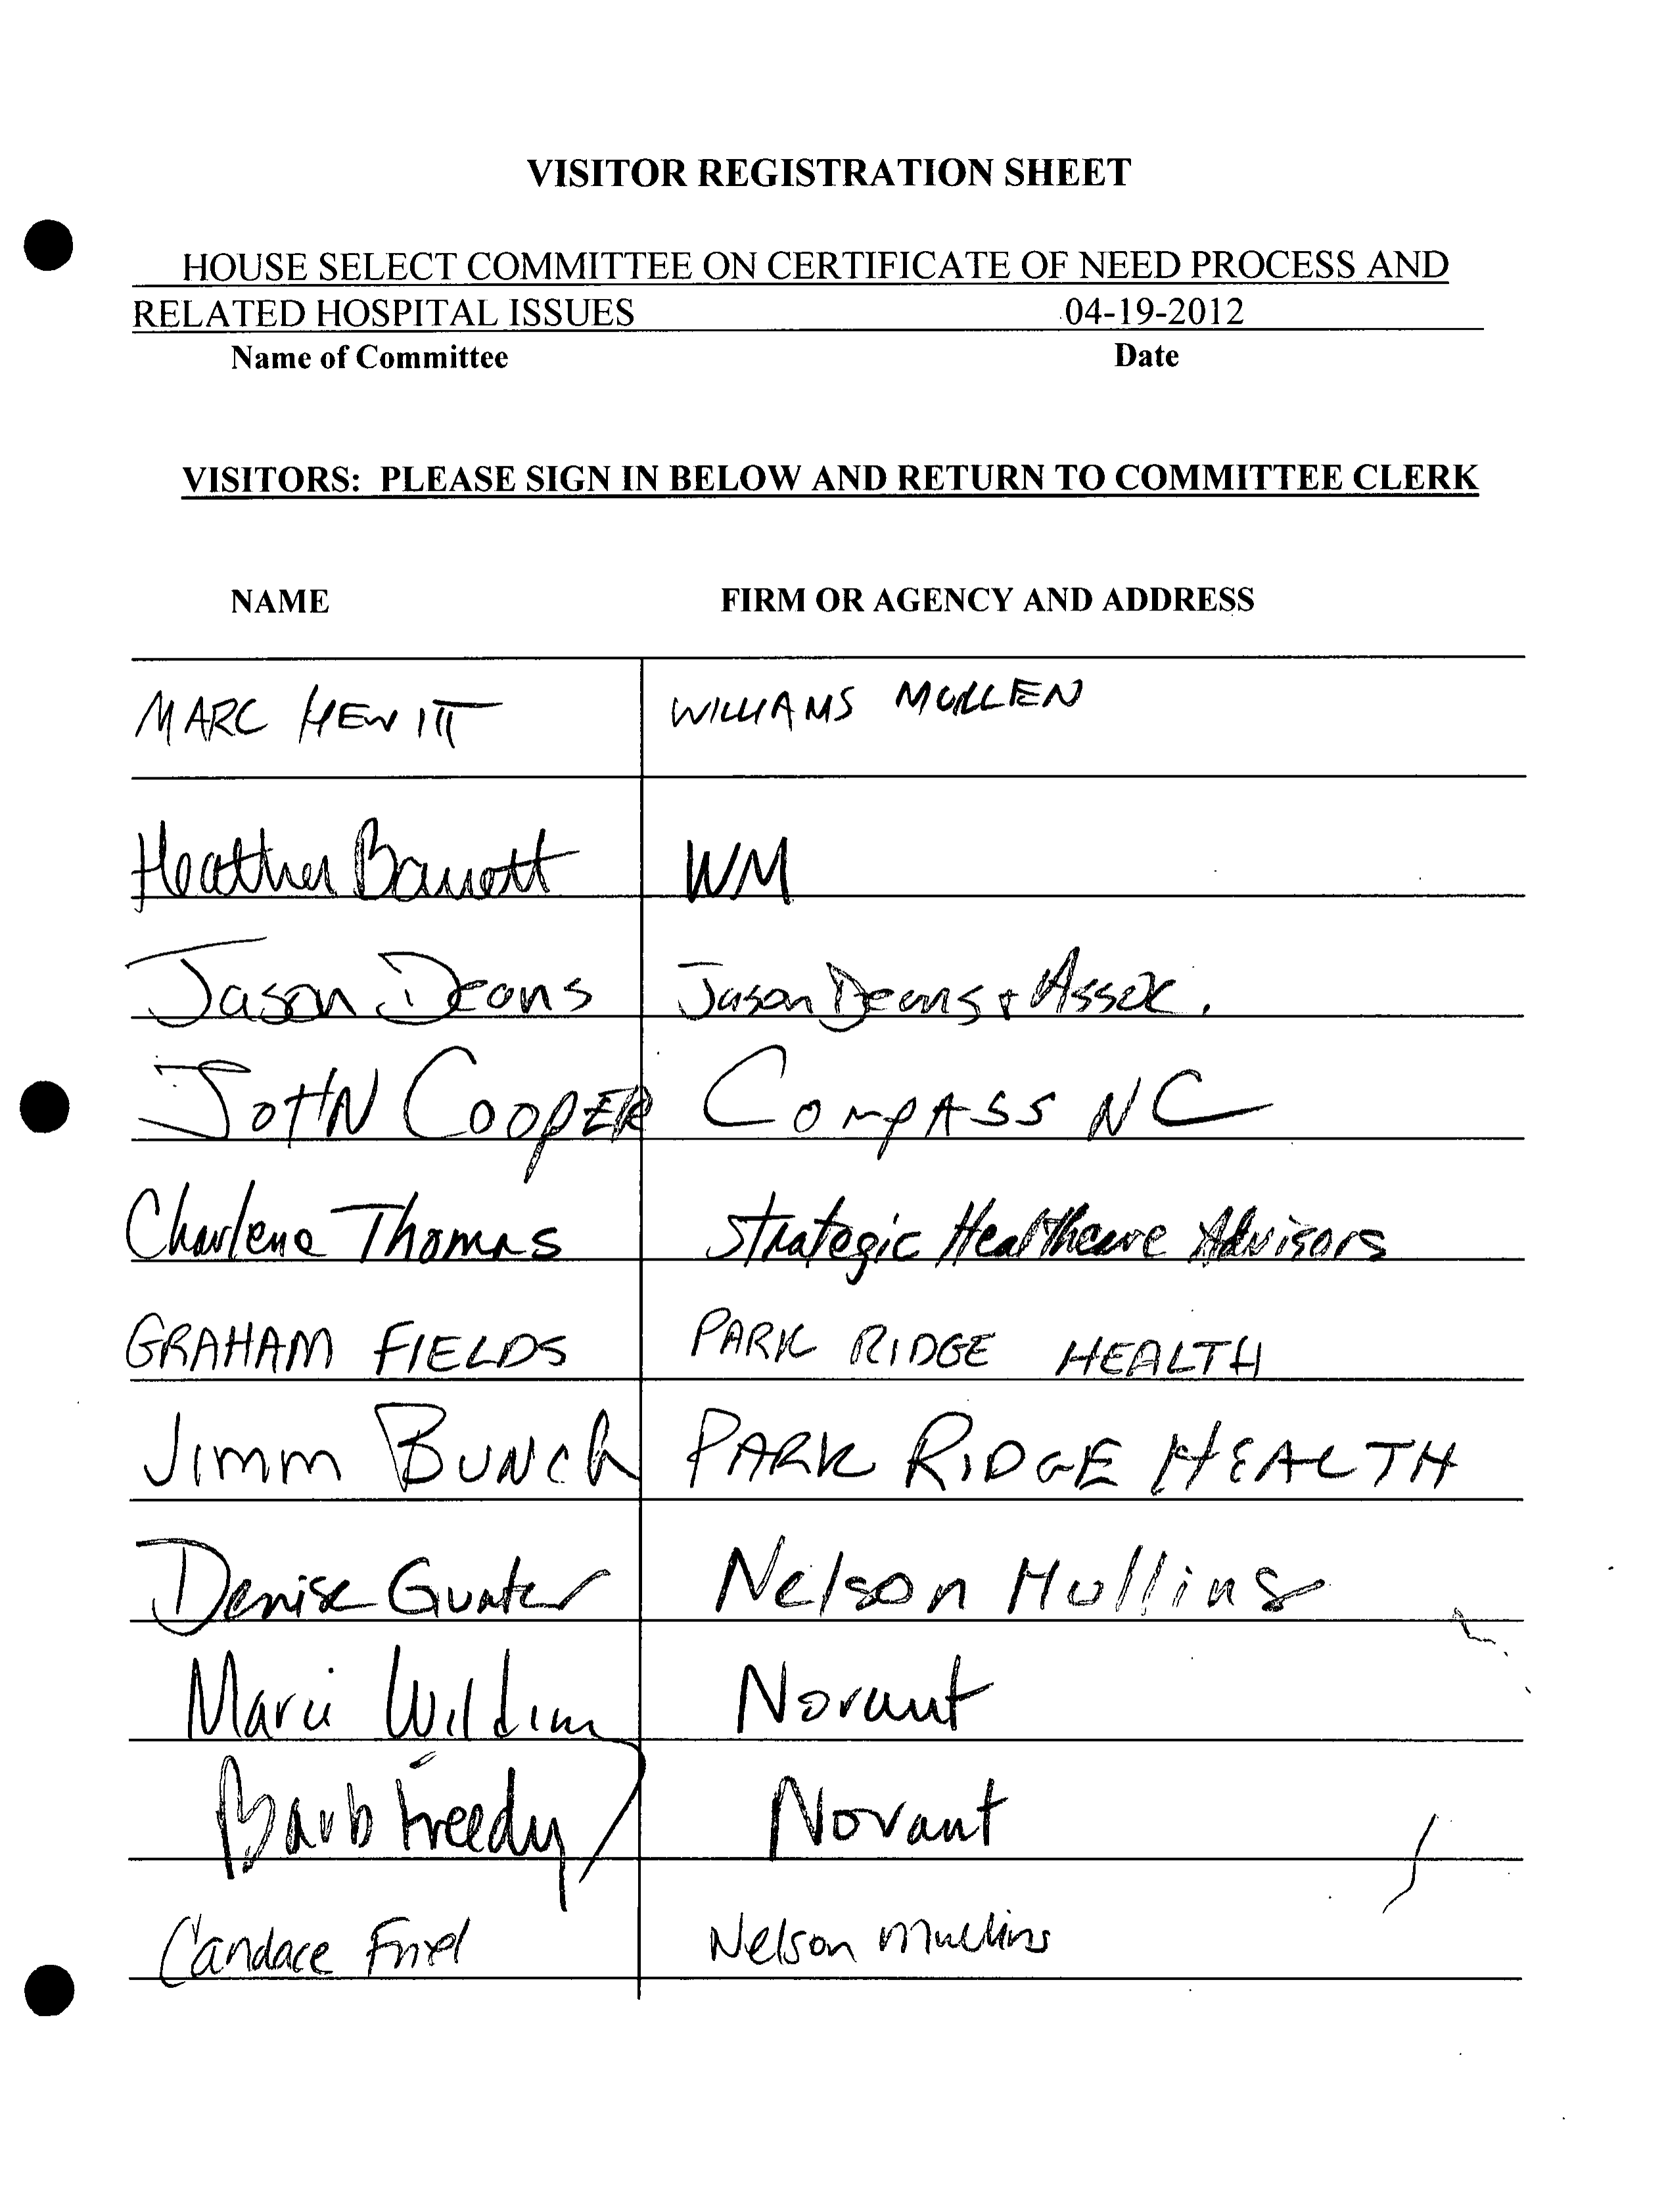 VISITOR REGISTRATION SHEET
HOUSE SELECT COMMITTEE ON CERTIFICATE OF NEED PROCESS AND
RELATED HOSPITAL ISSUES 04-19-2012
Name of Committee Date
VISITORS: PLEASE SIGN IN BELOW AND RETURN TO COMMITTEE CLERK
NAME FIRM OR AGENCY AND ADDRESS
MARC HEWITT WILLIAMS MULLEN
Heather Barrett WM
Jason Deans Jason Deans + Assoc.
JOHN COOPER COMPASS NC
Charlene Thomas Strategic Healthcare Advisors
GRAHAM FIELDS PARK RIDGE HEALTH
Jimm BUNCh PARK RIDGE HEALTH
Denise Gunter Nelson Mullins
Novant
Barb Freedy Novant
Candace Friel Nelson Mullins